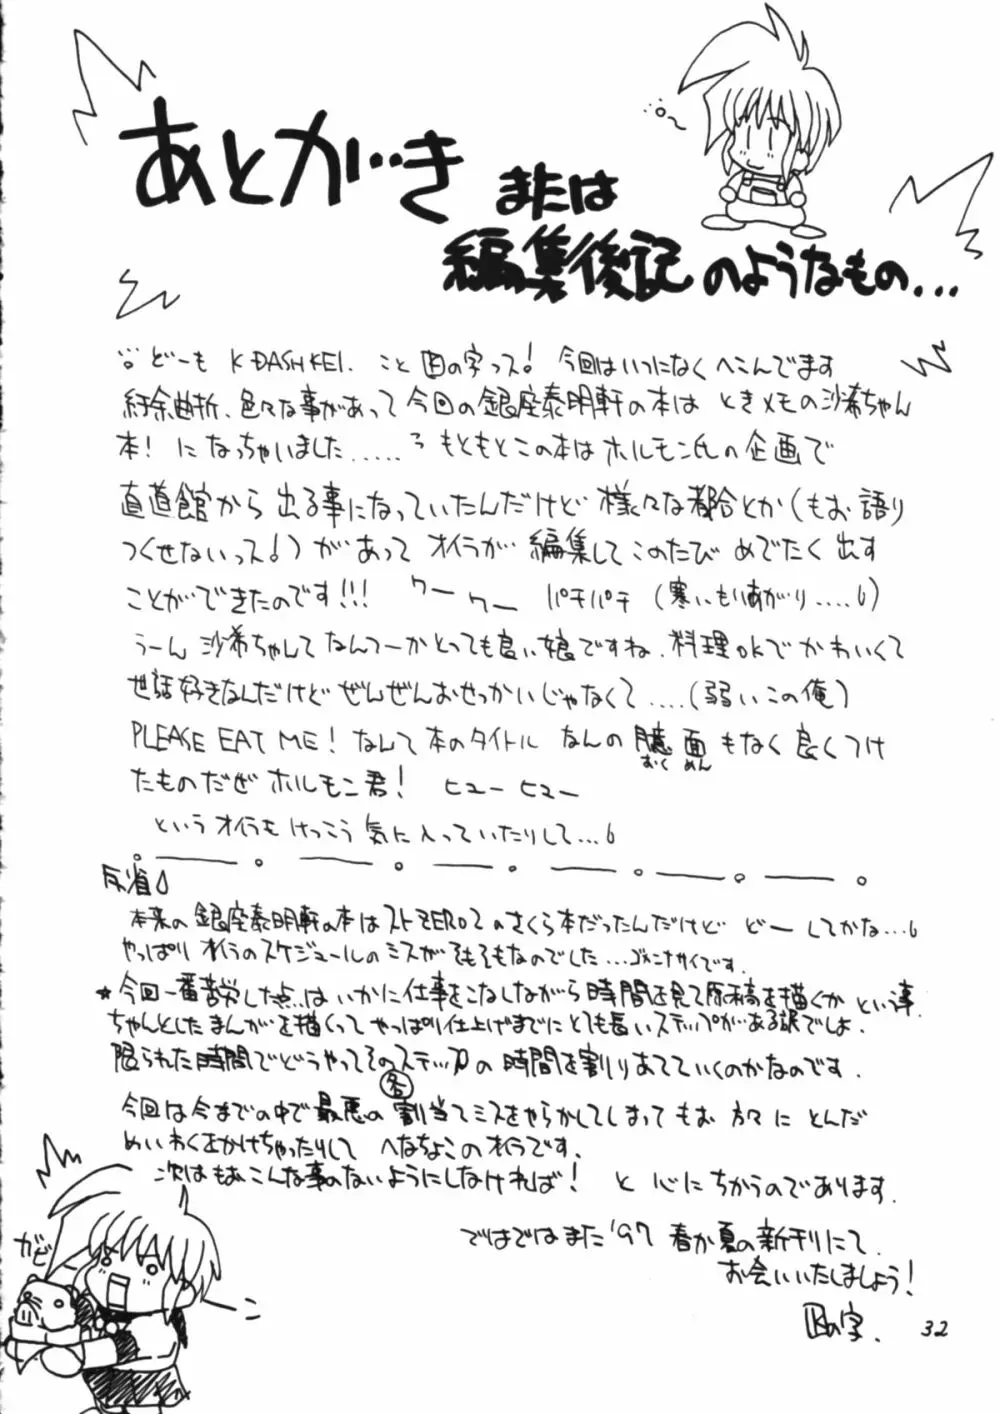 あとがき
または
編集後記のようなもの...
どーも K-DASH KEI. こと 凶の字っス! 今回はいつになくへこんでます
紆余曲折、色々な事があって今回の銀座泰明軒の本は ときメモの沙希ちゃん
本! に なっちゃいました.....。もともとこの本は ホルモン氏の企画で
直道館から 出る事になっていたんだけど 様々な都合とか(もお語り
つくせないっス!)が あって オイラが 編集して このたび めでたく出す
ことができたのです!!! ワー ワー パチパチ (寒いもりあがり.....)
うーん 沙希ちゃんて なんつーか とっても良い娘ですね. 料理okで かわいくて
世話好きなんだけど ぜんぜんおせっかいじゃなくて....(弱いこの俺)
PLEASE EAT ME! なんて本のタイトル なんの臆面もなく良くつけ
おくめん
たものだぜ ホルモン君! ヒューヒュー
というオイラも けっこう 気に入っていたりして...
反省
本来の 銀座泰明軒の本は ストZERO2のさくら本だったんだけど どーしてかな...
やっぱり オイラのスケジュールのミスが そもそもなのでした...ゴメンナサイです.
★今回一番苦労した点..は いかに仕事をこなしながら 時間を見て原稿を描くか という事.
ちゃんとした まんが を描くって やっぱり仕上げまでに とても長いステップが ある訳でしょ.
限られた時間で どうやって その各ステップの 時間を割りあてていくのかなのです.
今回は今までの中で 最悪の 割当てミスを やらかしてしまって もお 方々に とんだ
めいわくをかけちゃったりして へなちょこの オイラです.
次はもおこんな事のないようにしなければ! と 心にちかうのであります.
ではではまた '97 春か夏の新刊にて.
お会いいたしましょう!
凶の字.
32
ガビ